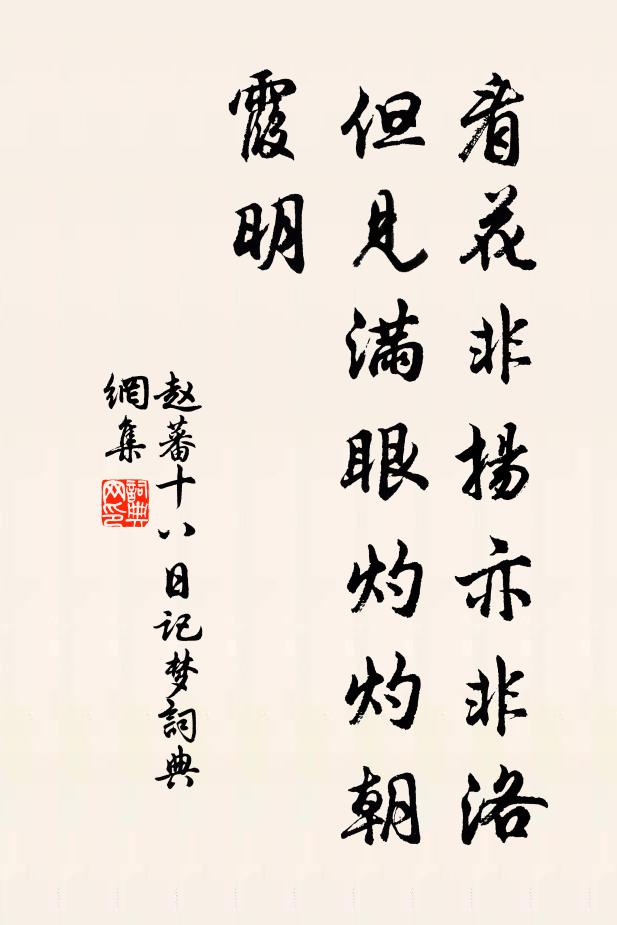 看花非揚亦非洛
但見滿眼灼灼朝
霞明
赵蕃十八日记梦詞典
網集
詞典
网印